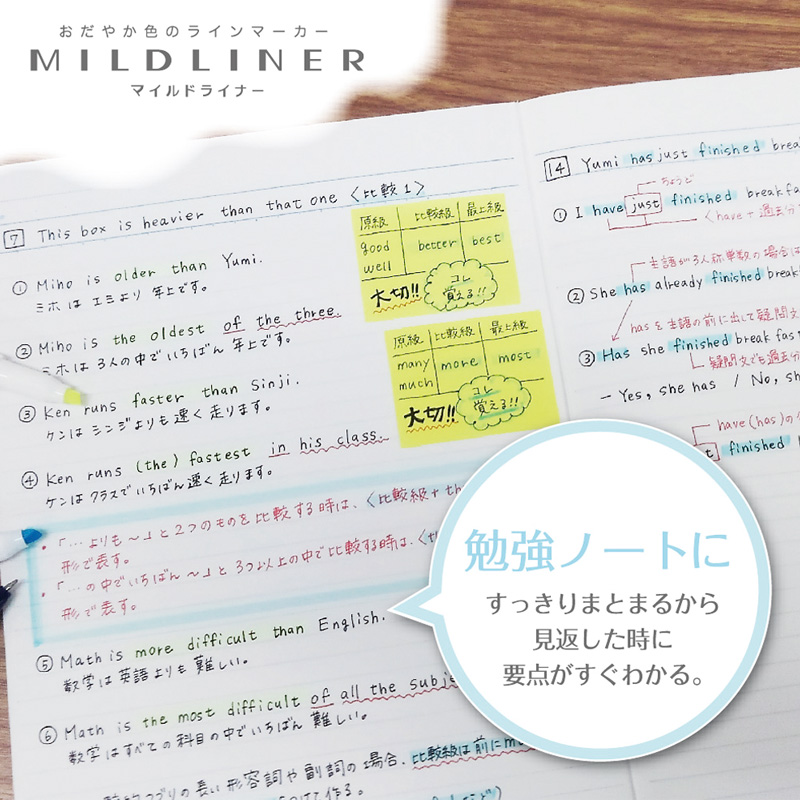 おだやか色のラインマーカー
MILDLINER
マイルドライナー
7 This box is heavier than that one 〈比較1〉
① Miho is older than Yumi.
ミホは エミより 年上です。
② Miho is the oldest of the three.
ミホは 3人の中でいちばん 年上です。
③ Ken runs faster than Sinji.
ケンは シンジよりも 速く 走ります。
④ Ken runs (the) fastest in his class.
ケンは クラスでいちばん 速く 走ります。
・「…よりも〜」と2つのものを比較する時は、〈比較級+th
形で表す。
・「…の中でいちばん〜」と3つ以上の中で比較する時は、〈th
形で表す。
⑤ Math is more difficult than English.
数学は 英語よりも 難しい。
⑥ Math is the most difficult of all the subje
数学は すべての 科目の中でいちばん 難しい。
の長い 形容詞や副詞の場合、比較級は前にm
つけて作る。
原級 比較級 最上級
good better best
well
大切!! コレ
覚える!!
原級 比較級 最上級
many more most
much
大切!! コレ
覚える!!
14 Yumi has just finished brea
ちょうど
① I have just finished breakfa
〈have+過去分
主語が3人称単数の場合は
② She has already finished break
hasを主語の前に出して疑問文
③ Has she finished breakfas
疑問文でも過去分
– Yes, she has / No, sh
have(has)の
finished
勉強ノートに
すっきりまとまるから
見返した時に
要点がすぐわかる。